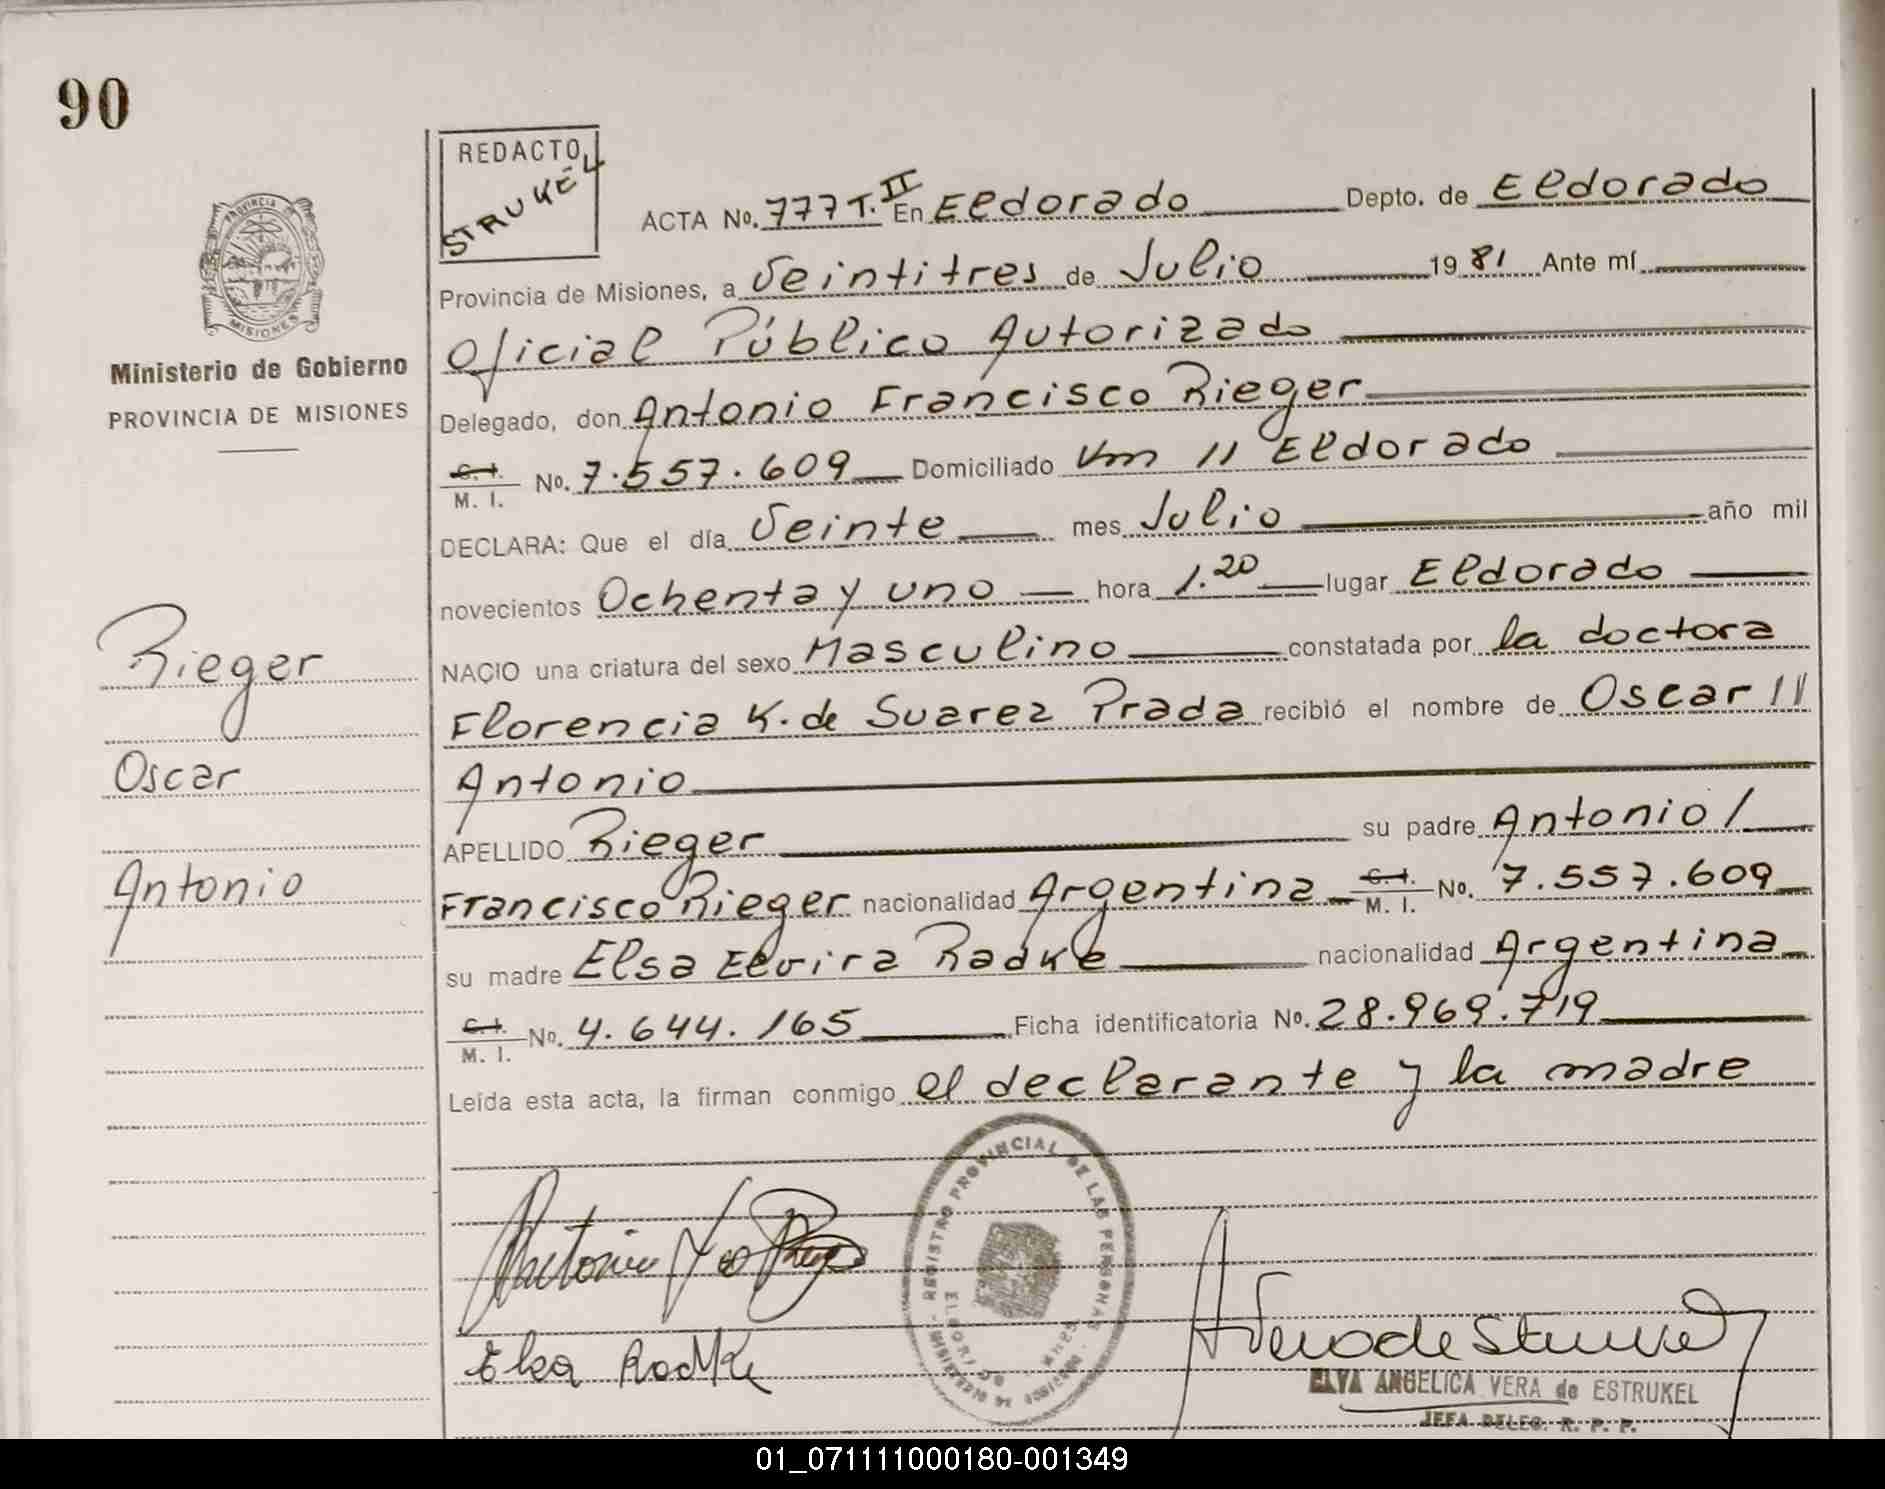 90
REDACTO
STRUKEL
ACTA No. 777 T. II En Eldorado Depto. de Eldorado
Provincia de Misiones, a Veintitres de Julio 1981 Ante mí
Oficial Público Autorizado
Delegado, don Antonio Francisco Rieger
C. I.
M. I. No. 7.557.609 Domiciliado Km 11 Eldorado
DECLARA: Que el día Veinte mes Julio año mil
novecientos Ochenta y uno hora 1.20 lugar Eldorado
NACIO una criatura del sexo Masculino constatada por la doctora
Florencia K. de Suarez Prada recibió el nombre de Oscar //
Antonio
APELLIDO Rieger su padre Antonio /
Francisco Rieger nacionalidad Argentina C. I. M. I. No. 7.557.609
su madre Elsa Elvira Radke nacionalidad Argentina
C. I.
M. I. No. 4.644.165 Ficha identificatoria No. 28.969.719
Leída esta acta, la firman conmigo el declarante y la madre
PROVINCIA
MISIONES
Ministerio de Gobierno
PROVINCIA DE MISIONES
Rieger
Oscar
Antonio
REGISTRO PROVINCIAL DE LAS PERSONAS
ELDORADO
Antonio Fco Rieger
Elsa Radke
A Vera de Estrukel
ELVA ANGELICA VERA de ESTRUKEL
JEFA DELEG. R. P. P.
01_071111000180-001349